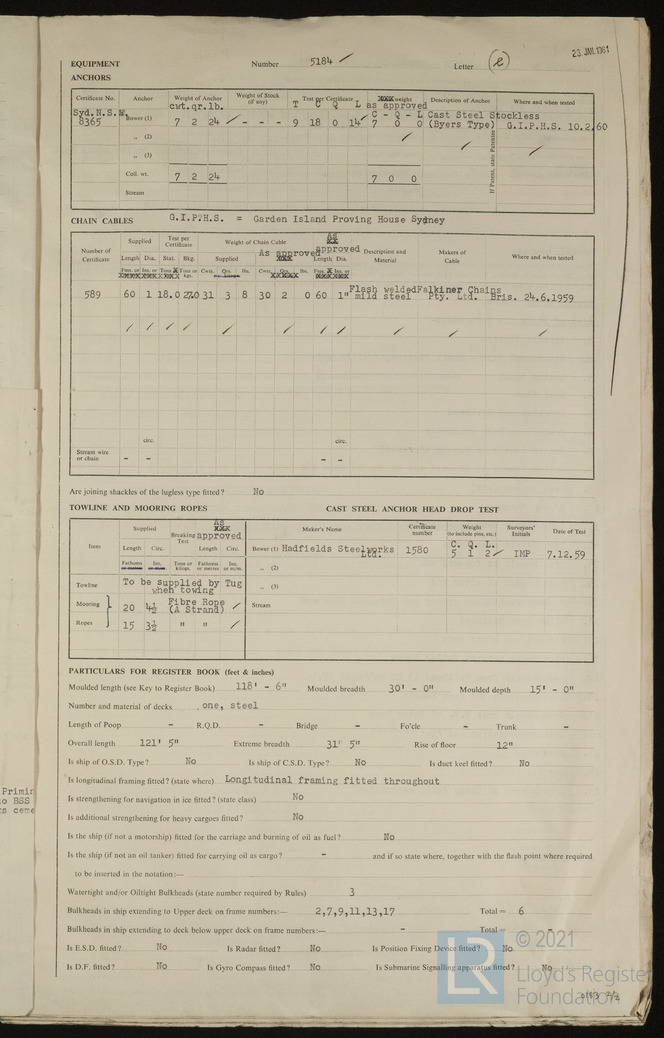 23 JAN 1961
EQUIPMENT Number 5184 Letter (e)
ANCHORS
Certificate No. Anchor Weight of Anchor Weight of Stock (if any) Test per Certificate as approved weight Description of Anchor Where and when tested
cwt.qr.lb. T C Q L
Syd.N.S.W. C - Q - L Cast Steel Stockless
8365 Bower (1) 7 2 24 - - - 9 18 0 14 7 0 0 (Byers Type) G.I.P.H.S. 10.2.60
„ (2)
„ (3)
If Patent, state Patentee
Coll. wt. 7 2 24 7 0 0
Stream
CHAIN CABLES G.I.P.H.S. = Garden Island Proving House Sydney
Number of Certificate Supplied Test per Certificate Weight of Chain Cable As approved Description and Material Makers of Cable Where and when tested
Length Dia. Stat. Bkg. Supplied As approved Length Dia.
Fms. or Ins. or Tons Tons or kgs. Cwts. Qrs. lbs. Cwts. Qrs. lbs. Fms. Ins. or
589 60 1 18.0 27.0 31 3 8 30 2 0 60 1" Flash welded mild steel Falkiner Chains Pty. Ltd. Bris. 24.6.1959
circ. circ.
Stream wire or chain - - - -
Are joining shackles of the lugless type fitted? No
TOWLINE AND MOORING ROPES CAST STEEL ANCHOR HEAD DROP TEST
Item Supplied Breaking Test As approved Maker's Name Certificate number Weight (to include pins, etc.) Surveyors' Initials Date of Test
Length Circ. Length Circ.
Fathoms or metres Ins. or m/m. Tons or kilogs. Fathoms or metres Ins. or m/m.
C. Q. L.
Bower (1) Hadfields Steelworks Ltd. 1580 5 1 2 IMP 7.12.59
„ (2)
Towline To be supplied by Tug when towing „ (3)
Mooring Ropes 20 4½ Fibre Rope (A Strand) Stream
15 3½ " "
PARTICULARS FOR REGISTER BOOK (feet & inches)
Moulded length (see Key to Register Book) 118' - 6" Moulded breadth 30' - 0" Moulded depth 15' - 0"
Number and material of decks one, steel
Length of Poop - R.Q.D. - Bridge - Fo'cle - Trunk -
Overall length 121' 5" Extreme breadth 31' 5" Rise of floor 12"
Is ship of O.S.D. Type? No Is ship of C.S.D. Type? No Is duct keel fitted? No
Is longitudinal framing fitted? (state where) Longitudinal framing fitted throughout
Is strengthening for navigation in ice fitted? (state class) No
Is additional strengthening for heavy cargoes fitted? No
Is the ship (if not a motorship) fitted for the carriage and burning of oil as fuel? No
Is the ship (if not an oil tanker) fitted for carrying oil as cargo? - and if so state where, together with the flash point where required
to be inserted in the notation:—
Watertight and/or Oiltight Bulkheads (state number required by Rules) 3
Bulkheads in ship extending to Upper deck on frame numbers:— 2,7,9,11,13,17 Total = 6
Bulkheads in ship extending to deck below upper deck on frame numbers:— - Total = -
Is E.S.D. fitted? No Is Radar fitted? No Is Position Fixing Device fitted? No
Is D.F. fitted? No Is Gyro Compass fitted? No Is Submarine Signalling apparatus fitted? No
Primin
to BSS
ts ceme
LR © 2021
Lloyd's Register
Foundation